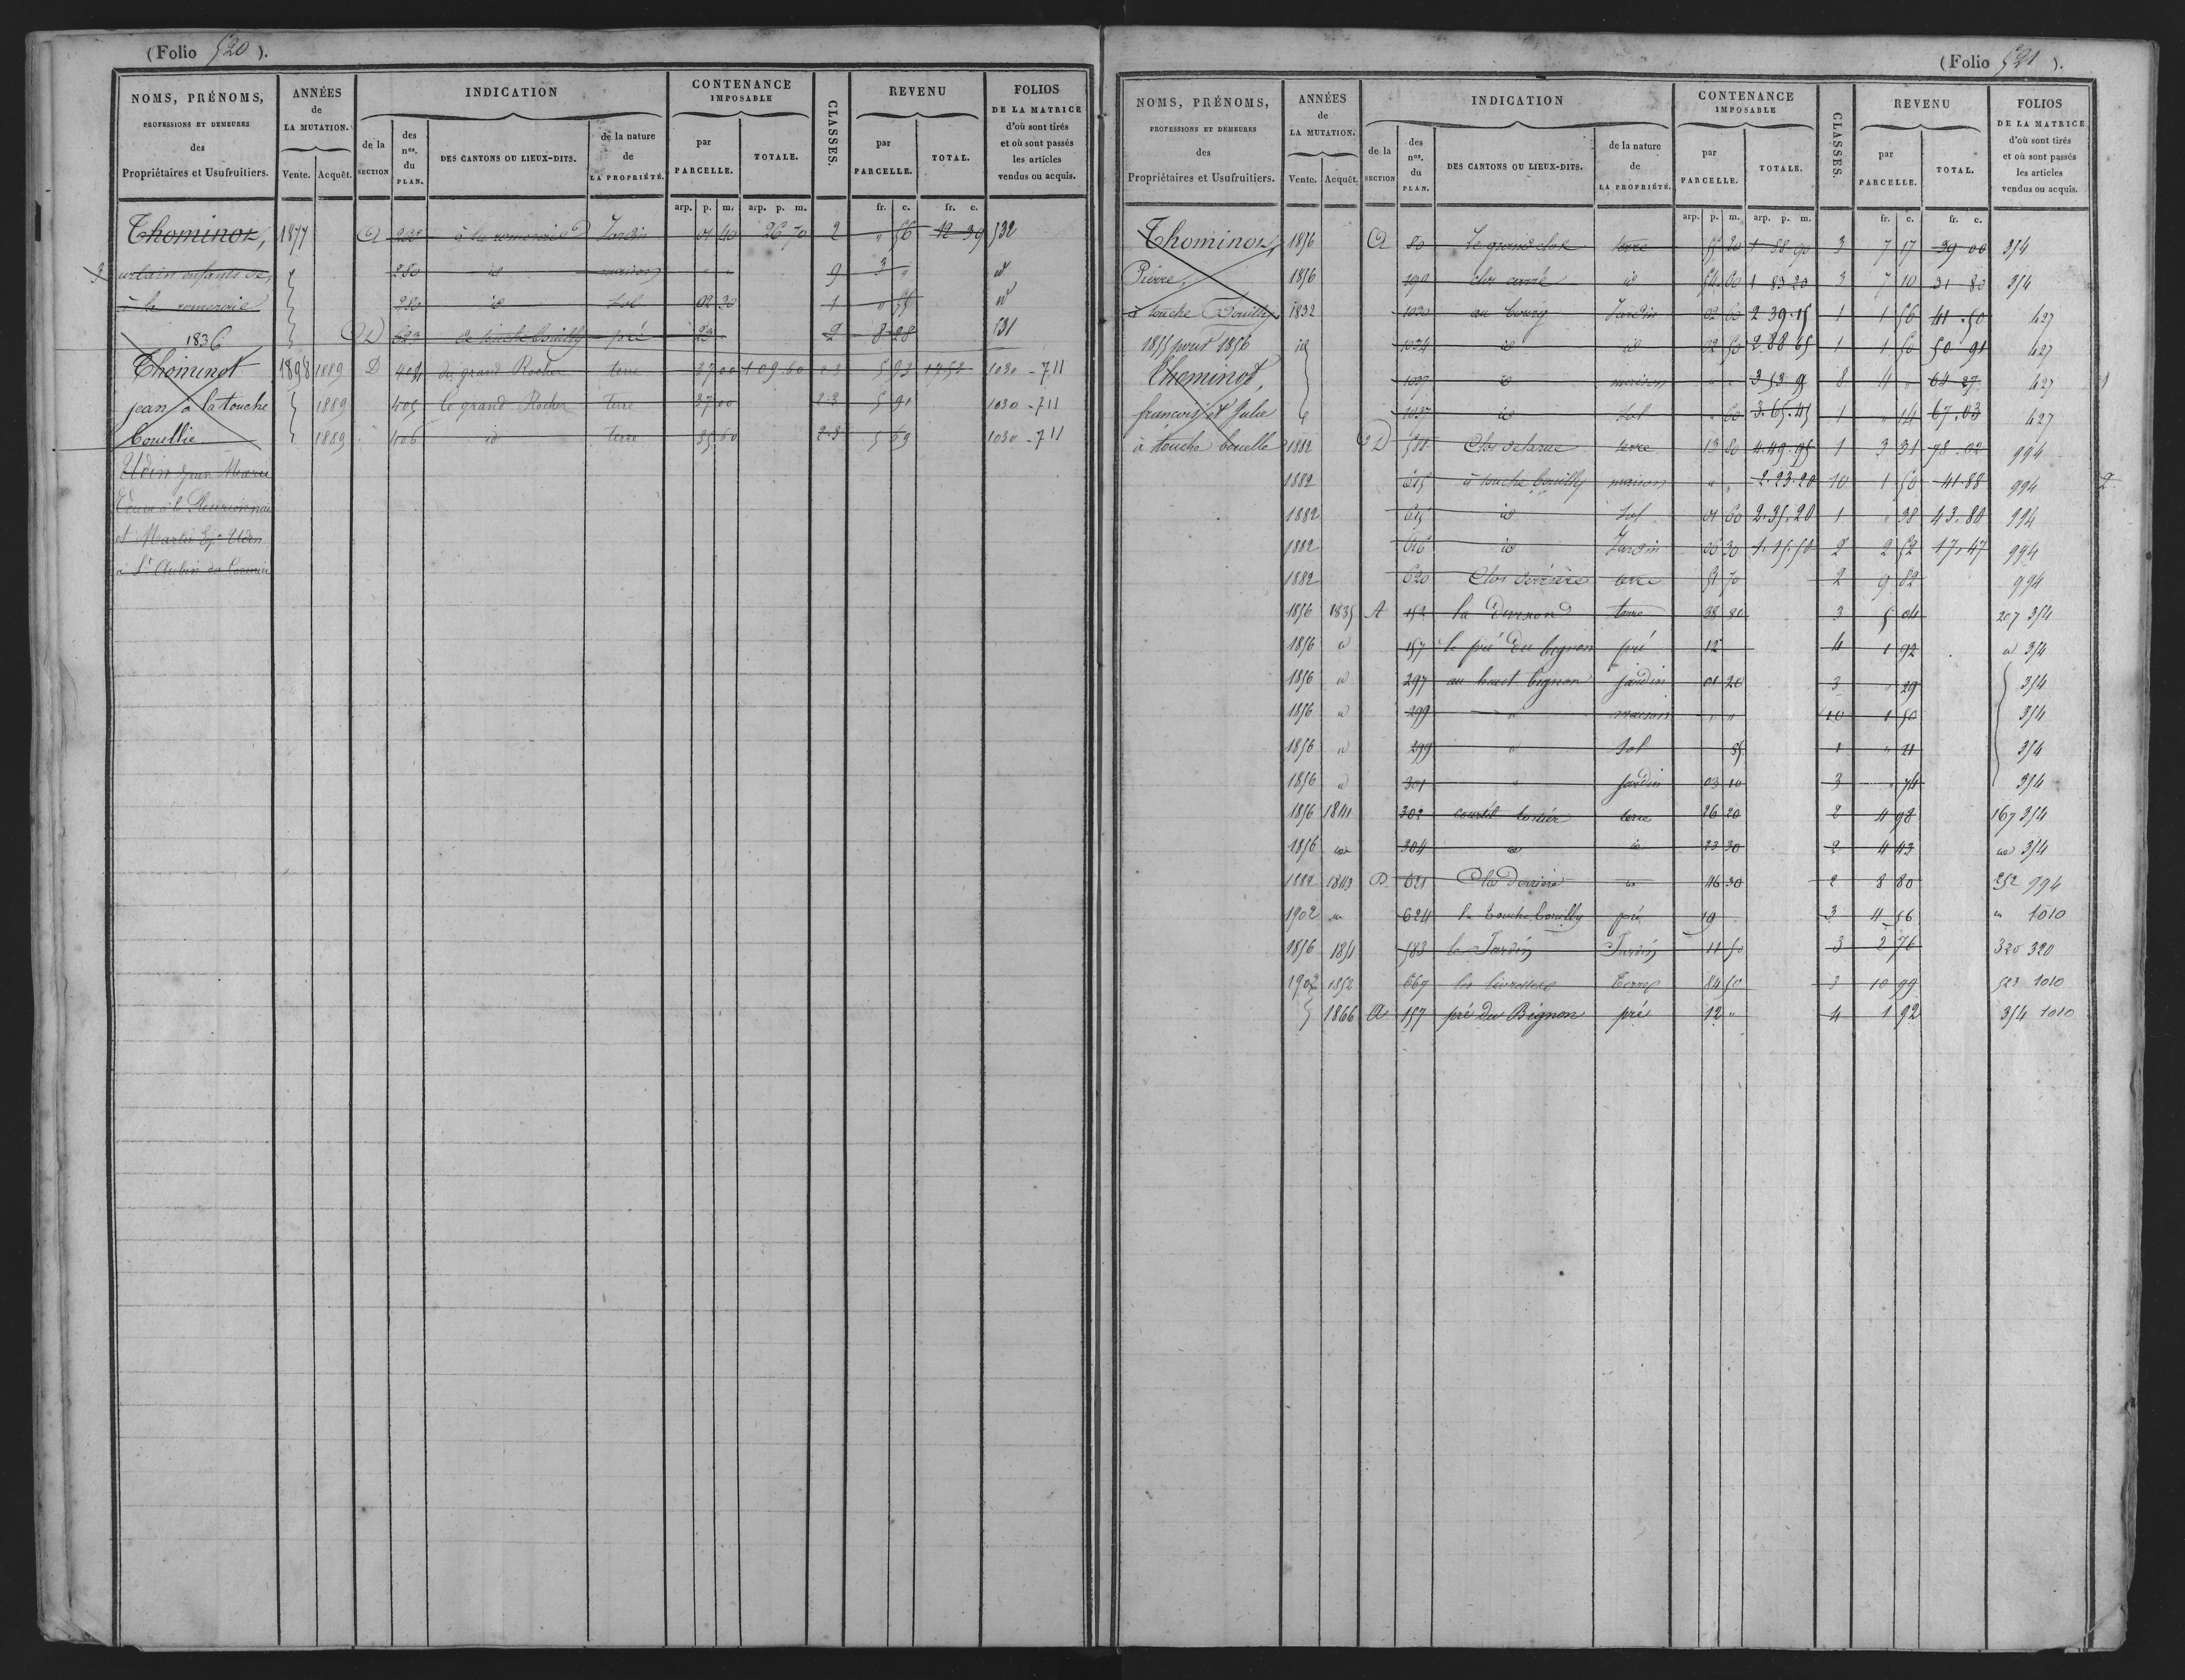 (Folio 520 ).
NOMS, PRÉNOMS, PROFESSIONS ET DEMEURES des Propriétaires et Usufruitiers.
ANNÉES de LA MUTATION. Vente. Acquêt.
INDICATION de la SECTION des nos. du PLAN. DES CANTONS OU LIEUX-DITS. de la nature de LA PROPRIÉTÉ.
CONTENANCE IMPOSABLE par PARCELLE. TOTALE.
CLASSES.
REVENU par PARCELLE. TOTAL.
FOLIOS DE LA MATRICE d'où sont tirés et où sont passés les articles vendus ou acquis.
arp. p. m. arp. p. m. fr. c. fr. c.
Thominot, 1877 228 Jardin 01 40 26 70 2 " 56 12 39 532
3 urbain enfants de, 280 id maison " " 9 3 " id
à la romeraie 280 id Sol 02 30 1 " id
1836 D 623 pré 23 2 8 28 531
Thominot 1898 1889 D 404 du grand Rocher terre 37 00 109 60 2.3 5 93 17.52 1030 - 711
jean à la touche 1889 405 le grand Rocher Terre 37 00 2.3 5 91 1030 - 711
Bouillie 1889 406 id terre 35 60 2.3 5 69 1030 - 711
Udin Jean Marie
Veuve à la
et Martin Udin
à St Aubin du Cormier
(Folio 521 ).
NOMS, PRÉNOMS, PROFESSIONS ET DEMEURES des Propriétaires et Usufruitiers.
ANNÉES de LA MUTATION. Vente. Acquêt.
INDICATION de la SECTION des nos. du PLAN. DES CANTONS OU LIEUX-DITS. de la nature de LA PROPRIÉTÉ.
CONTENANCE IMPOSABLE par PARCELLE. TOTALE.
CLASSES.
REVENU par PARCELLE. TOTAL.
FOLIOS DE LA MATRICE d'où sont tirés et où sont passés les articles vendus ou acquis.
arp. p. m. arp. p. m. fr. c. fr. c.
Thominot, 1856 80 Le grand clos terre 55 20 1 58 90 3 7 17 39 00 354
Pierre, 1856 190 clos carré id 54 60 1 83 20 3 7 10 31 80 354
à touche Bouilly 1832 1030 au bourg Jardin 02 60 2 39.15 1 1 56 41.50 427
1855 pour 1856 id 1034 id id 02 50 2 88 65 1 1 50 50 91 427
Thominot, 1037 id maison " " 3 53 8 4 " 64 27 427 1
françois et Julie 1037 id Sol " 60 3.65.45 1 " 14 67.03 427
à touche bouelle 1882 D Clos terre 13 80 4.49.95 1 3 31 78.02 994
1882 615 à touche bouilly maison " " 2.23.20 10 1 50 41.88 994 2
1882 615 id Sol 01 60 2.35.20 1 " 38 43.80 994
1882 616 id Jardin 06 30 1.15.50 2 2 52 17.47 994
1882 620 Clos derrière terre 51 70 2 9 82 994
1856 1835 A 152 la terre 38 80 3 5 04 207 354
1856 id 157 le pré du bignon pré 12 4 1 92 id 354
1856 id 297 au haut bignon jardin 01 20 3 " 29 354
1856 id 299 " maison " " 10 1 50 354
1856 id 299 " Sol 85 1 " 21 354
1856 id 301 " jardin 03 10 3 " 74 354
1856 1841 302 courtil terre 26 20 2 4 98 167 354
1856 id 304 id id 23 30 2 4 43 id 354
1882 1843 D 621 Clos Derrière id 46 30 2 8 80 252 994
1902 id 624 la Touche bouilly pré 19 3 4 56 " 1010
1856 1851 583 le Jardin Jardin 11 50 3 2 76 320 320
1902 1852 667 Terre 84 50 3 10 99 523 1010
1866 A 157 pré du Bignon pré 12 " 4 1 92 354 1010